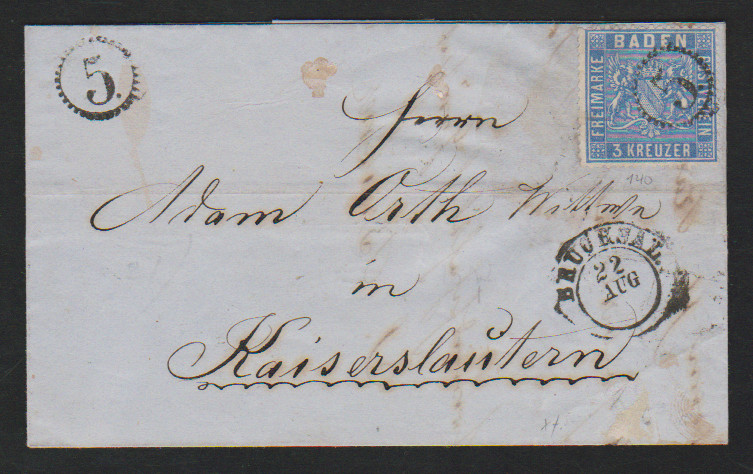 5.
BADEN
FREIMARKE
POSTVEREIN
3 KREUZER
5
140
Herrn
Adam Orth Wittwe
in
Kaiserslautern
BRUCHSAL
22
AUG